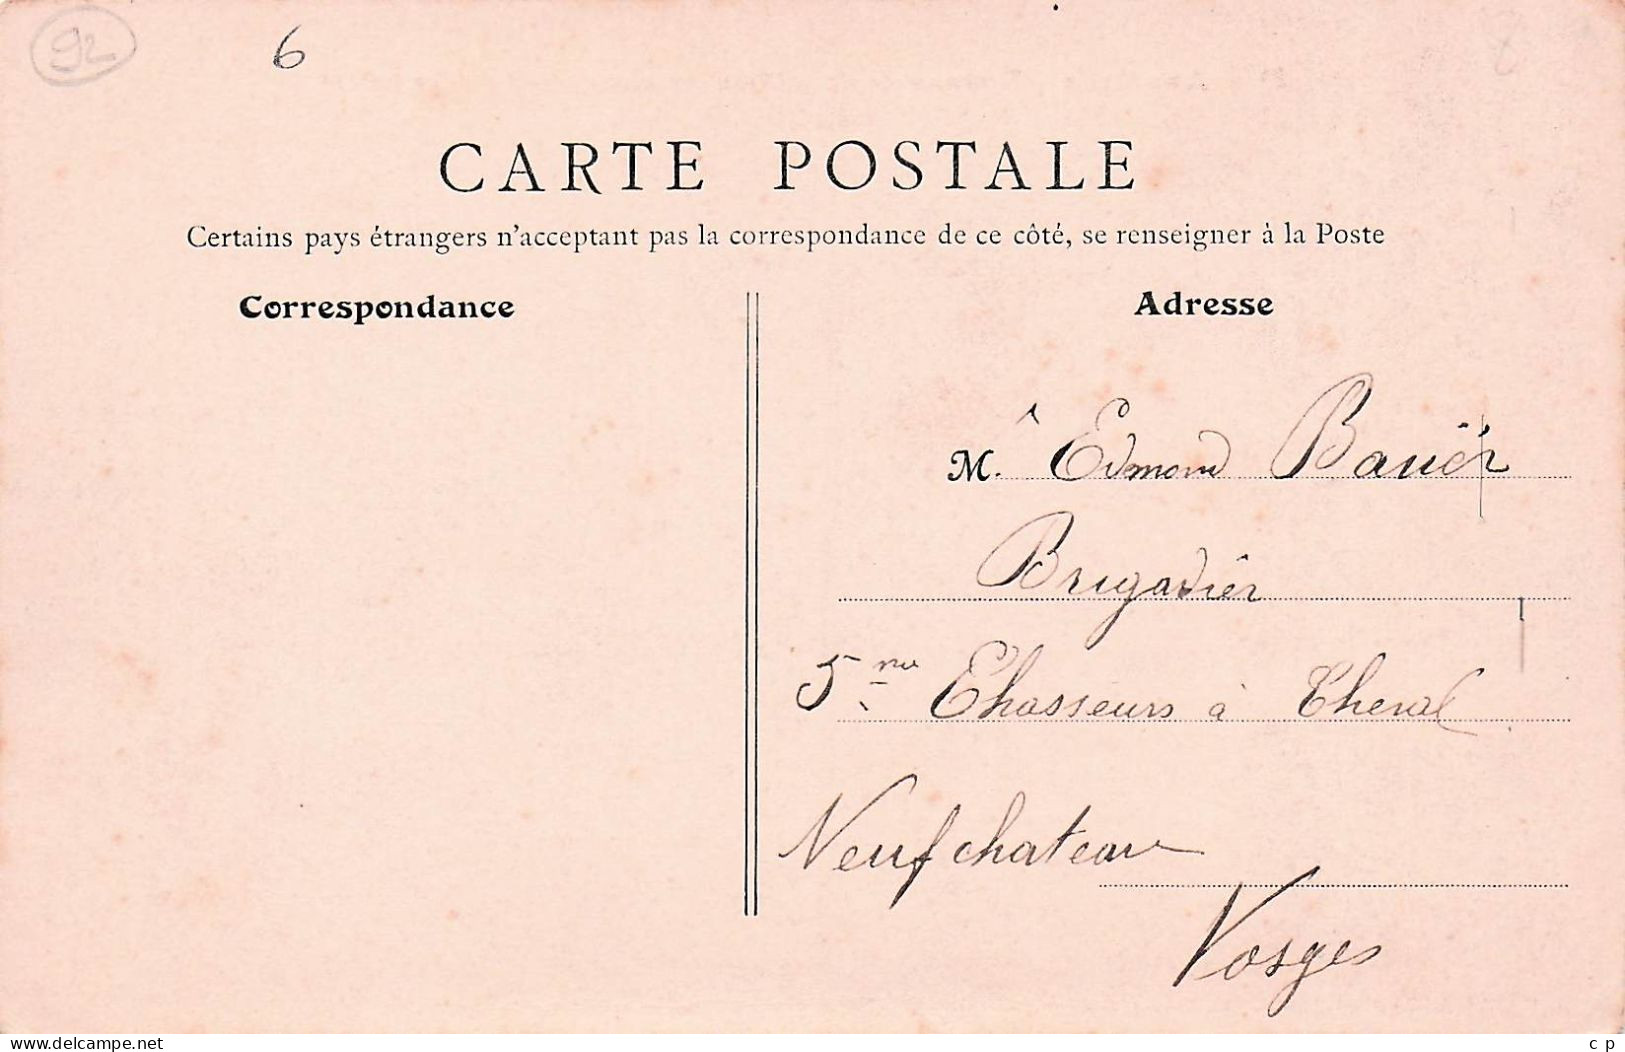 92
6
CARTE POSTALE
Certains pays étrangers n'acceptant pas la correspondance de ce côté, se renseigner à la Poste
Correspondance
Adresse
M. Edmond Bauër
Brigadier
5me Chasseurs à Cheval
Neufchateau
Vosges
delcampe.net
c p